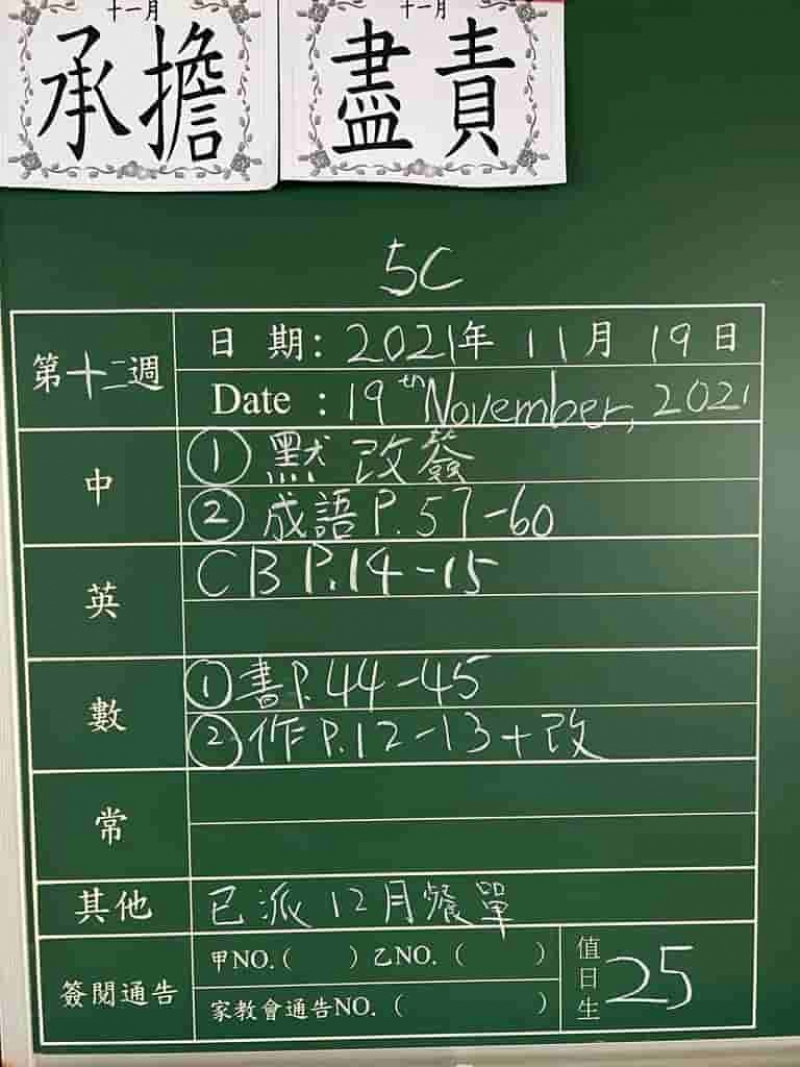 十一月
承擔
十一月
盡責
5C
第十二週
日期：2021年 11月 19日
Date : 19th November, 2021
中
① 默 改簽
② 成語 P.57-60
英
CB P.14-15
數
① 書P.44-45
② 作 P.12-13+改
常
其他
已派 12月餐單
簽閱通告
甲NO.( ) 乙NO.( )
家教會通告NO.( )
值日生
25